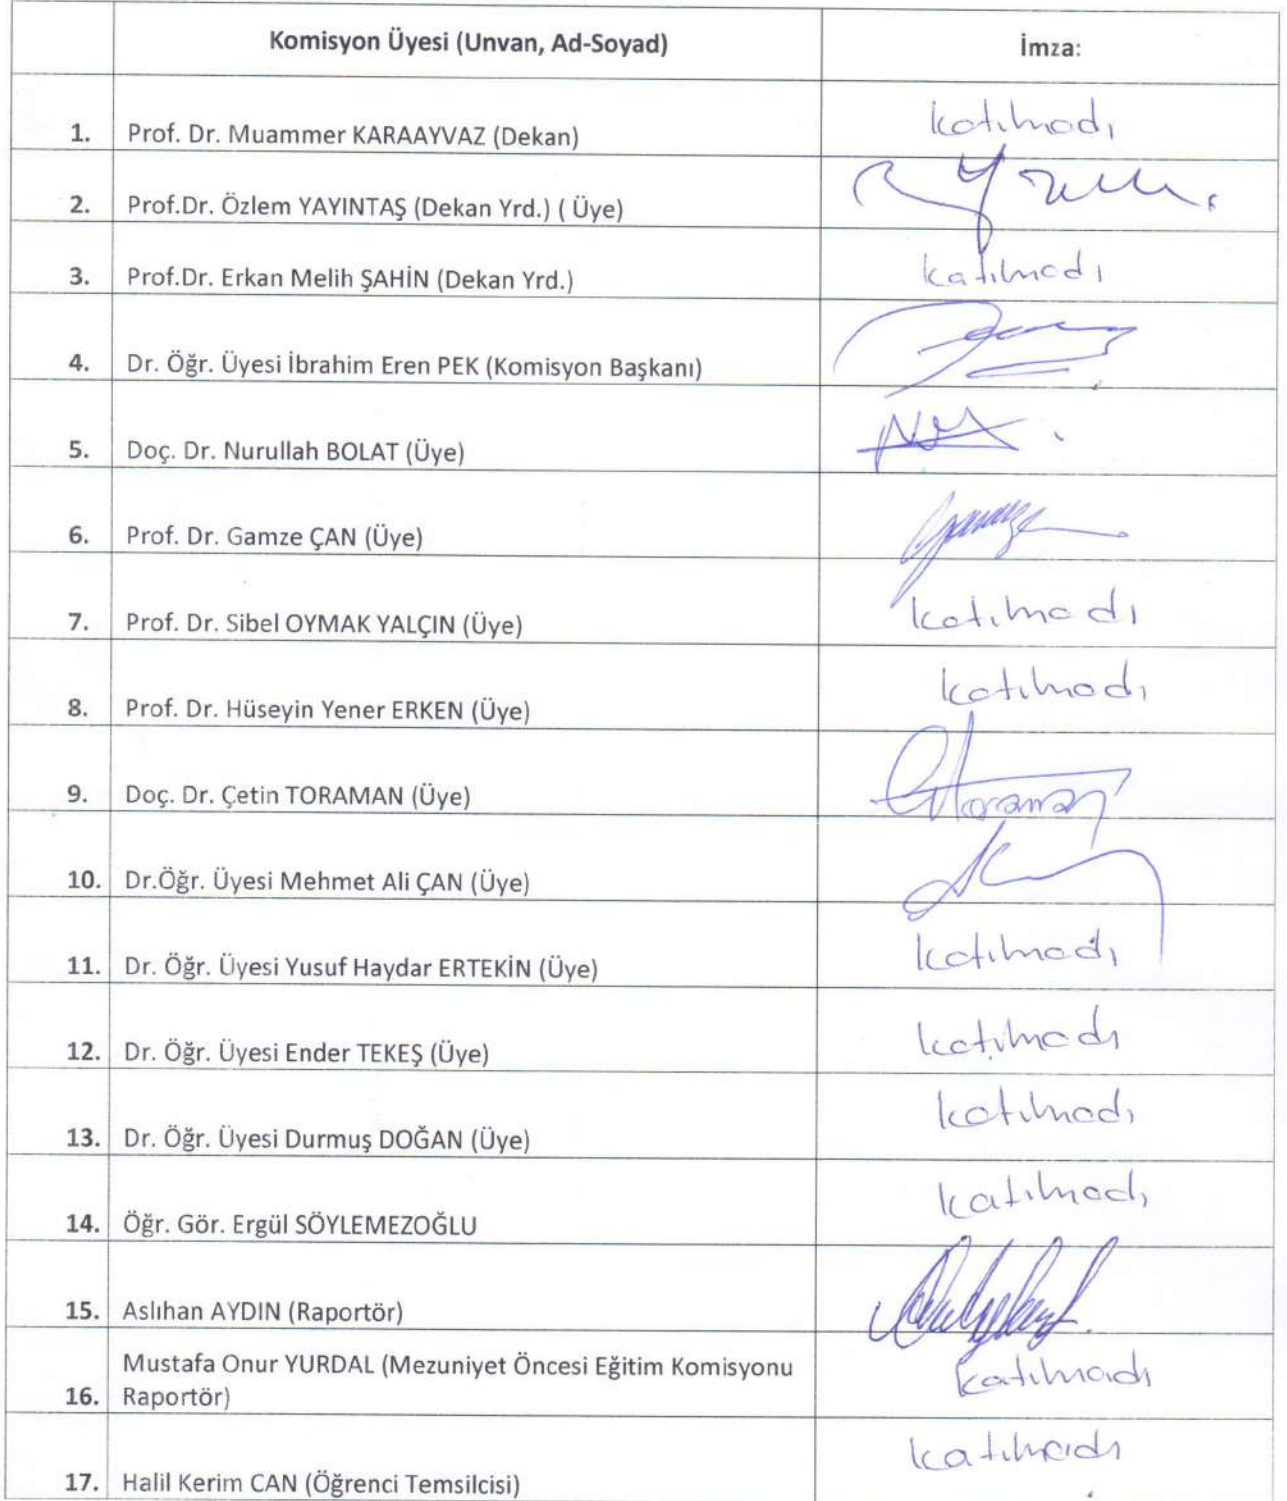 Komisyon Üyesi (Unvan, Ad-Soyad) İmza:
1. Prof. Dr. Muammer KARAAYVAZ (Dekan) Katılmadı
2. Prof.Dr. Özlem YAYINTAŞ (Dekan Yrd.) ( Üye)
3. Prof.Dr. Erkan Melih ŞAHİN (Dekan Yrd.) Katılmadı
4. Dr. Öğr. Üyesi İbrahim Eren PEK (Komisyon Başkanı)
5. Doç. Dr. Nurullah BOLAT (Üye)
6. Prof. Dr. Gamze ÇAN (Üye)
7. Prof. Dr. Sibel OYMAK YALÇIN (Üye) Katılmadı
8. Prof. Dr. Hüseyin Yener ERKEN (Üye) Katılmadı
9. Doç. Dr. Çetin TORAMAN (Üye)
10. Dr.Öğr. Üyesi Mehmet Ali ÇAN (Üye)
11. Dr. Öğr. Üyesi Yusuf Haydar ERTEKİN (Üye) Katılmadı
12. Dr. Öğr. Üyesi Ender TEKEŞ (Üye) Katılmadı
13. Dr. Öğr. Üyesi Durmuş DOĞAN (Üye) Katılmadı
14. Öğr. Gör. Ergül SÖYLEMEZOĞLU Katılmadı
15. Aslıhan AYDIN (Raportör)
Mustafa Onur YURDAL (Mezuniyet Öncesi Eğitim Komisyonu
16. Raportör) Katılmadı
17. Halil Kerim CAN (Öğrenci Temsilcisi) Katılmadı